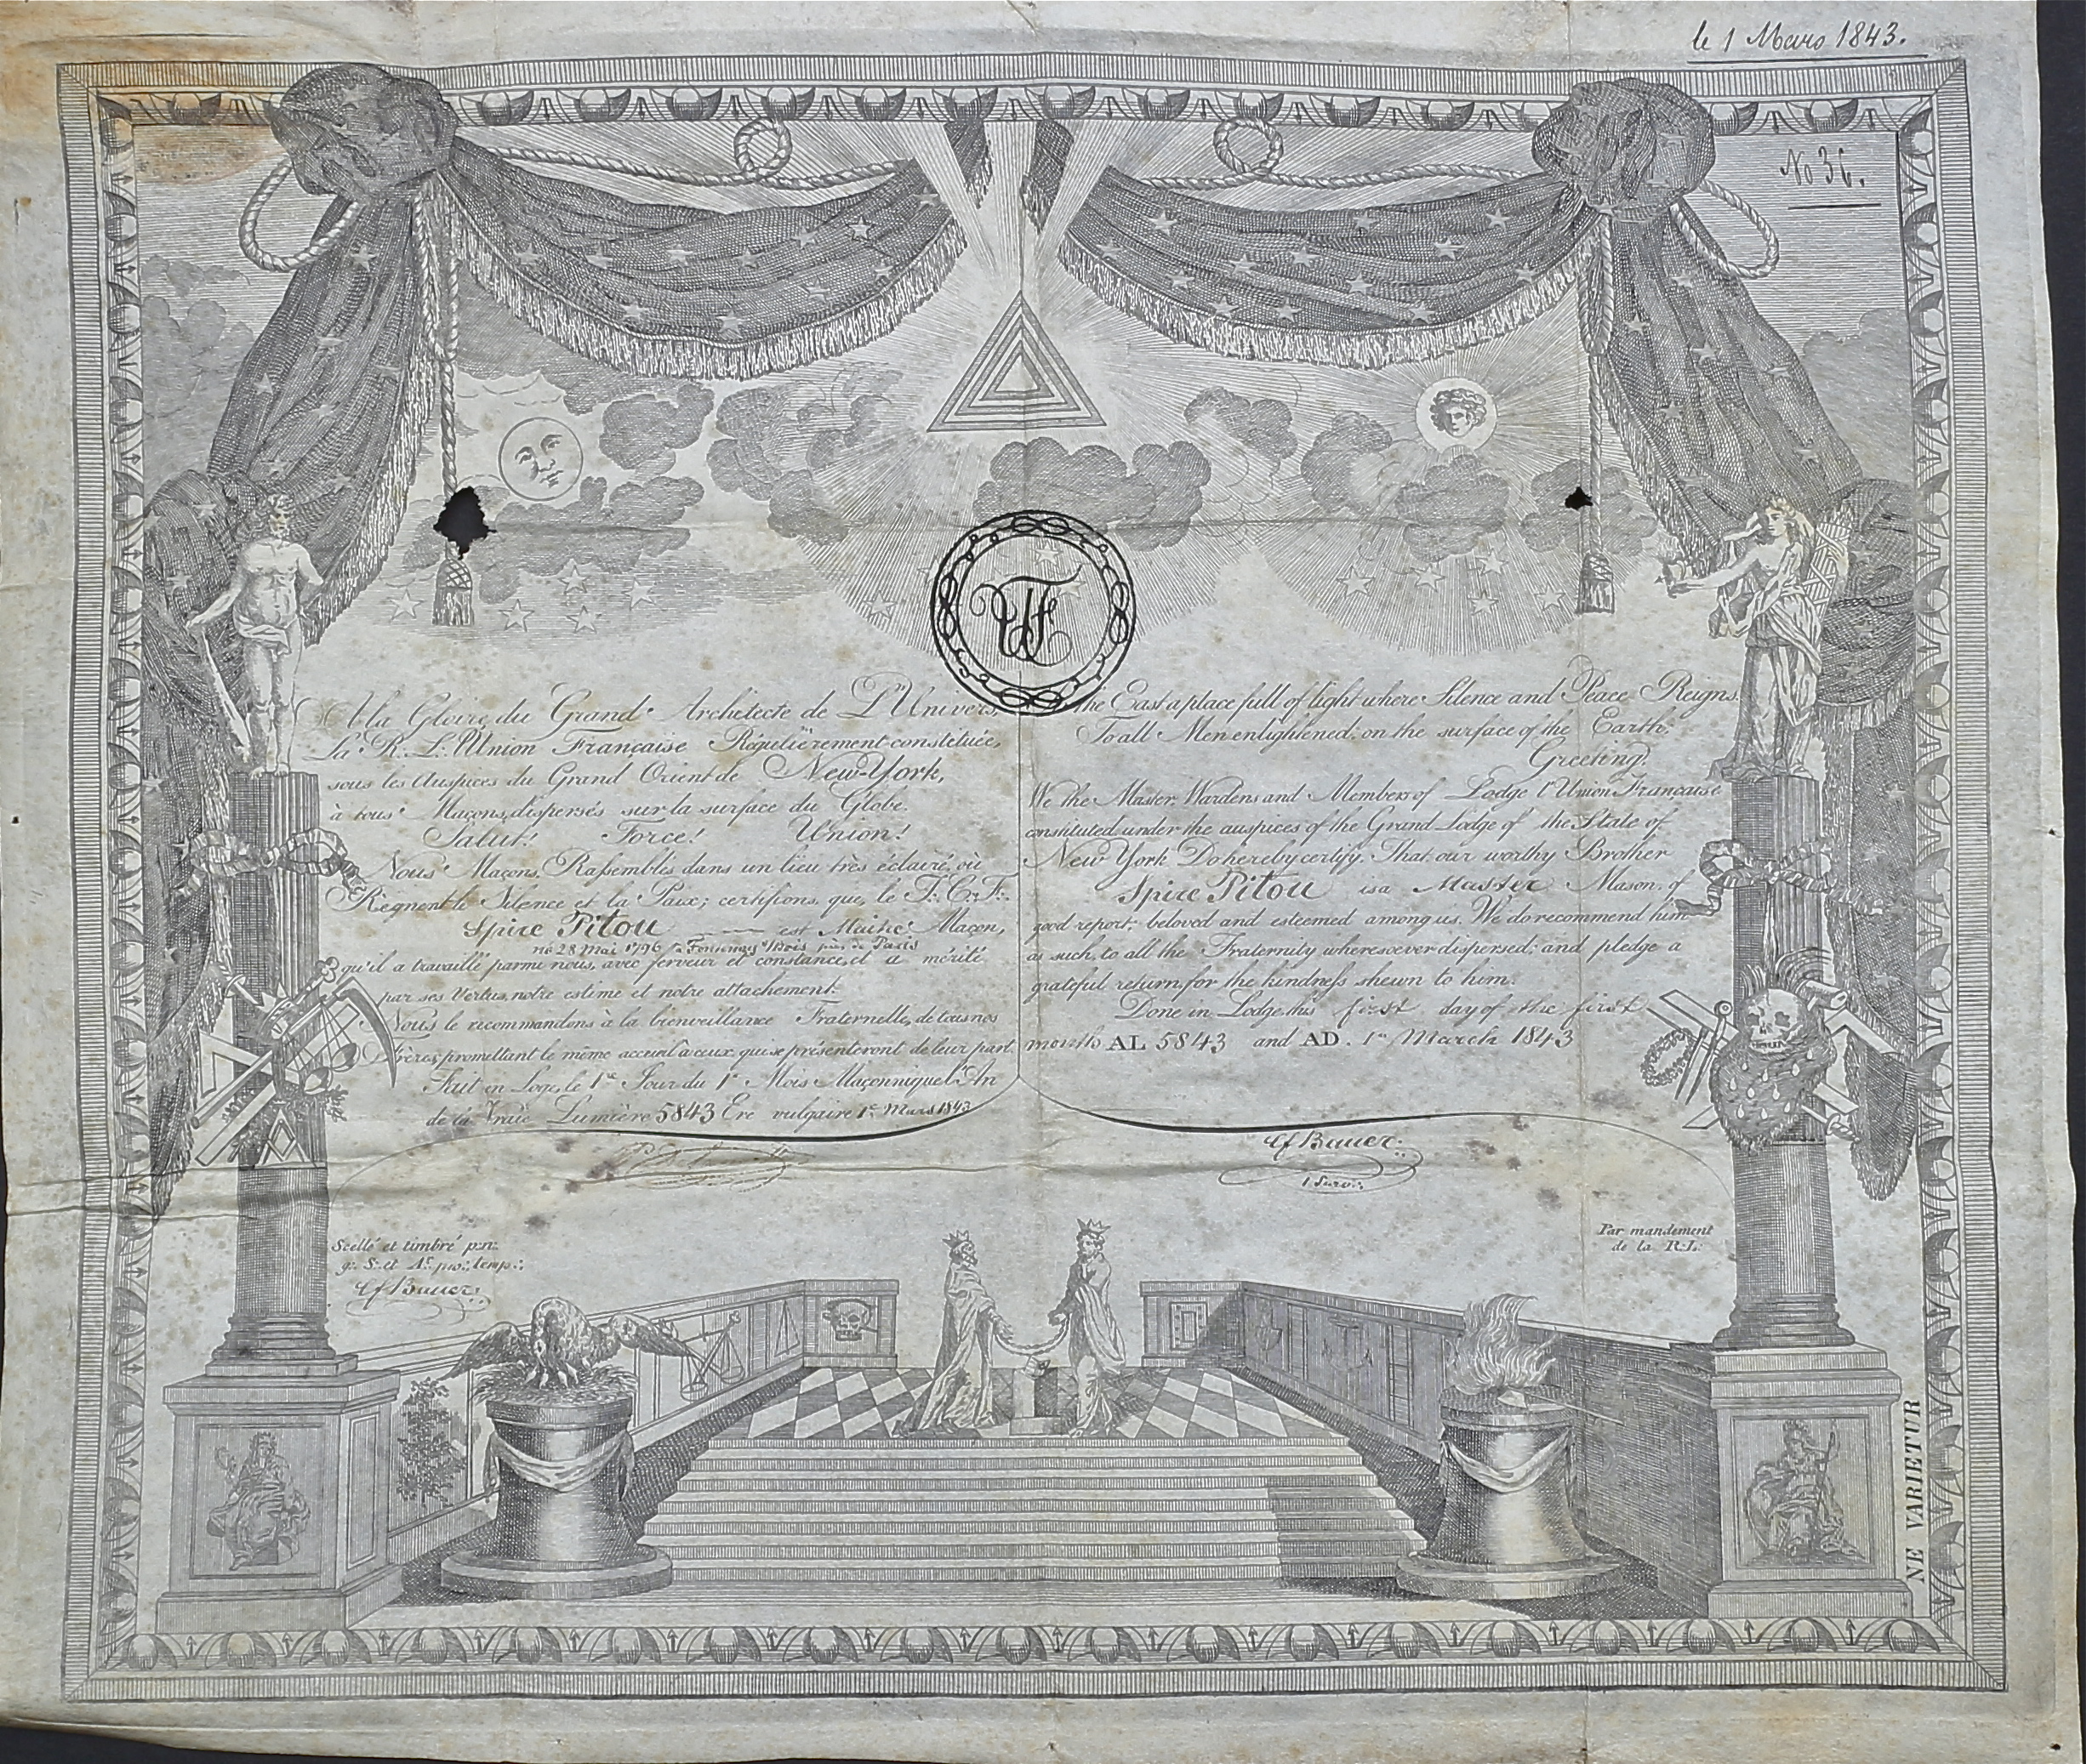 le 1 Mars 1843.
No 36.
UF
A la Gloire du Grand Architecte de L'Univers,
La R. L. Union Française Régulièrement constituée,
sous les Auspices du Grand Orient de New-York,
à tous Maçons, dispersés sur la surface du Globe.
Salut! Force! Union!
Nous Maçons, Rassemblés dans un lieu très éclairé, où
Règnent le Silence et la Paix; certifions, que, le T. C. F.
Spire Pitou est Maitre Maçon,
né 28 Mai 1796 à Fontenay s/Bois près de Paris
qu'il a travaillé parmi nous, avec ferveur et constance, et a mérité
par ses Vertus, notre estime et notre attachement.
Nous le recommandons à la bienveillance Fraternelle, de tous nos
Frères, promettant le même accueil à ceux, qui se présenteront de leur part.
Fait en Loge, le 1er Jour du 1er Mois Maçonnique L'An
de la Vraie Lumière 5843 Ere vulgaire 1er Mars 1843
The East a place full of light where Silence and Peace Reigns.
To all Men enlightened, on the surface of the Earth.
Greeting.
We the Master, Wardens and Members of Lodge l'Union Française
constituted under the auspices of the Grand Lodge of the State of
New York Do hereby certify, That our worthy Brother
Spire Pitou is a Master Mason, of
good report; beloved and esteemed among us. We do recommend him
as such, to all the Fraternity wheresoever dispersed; and pledge a
grateful return, for the kindness shewn to him.
Done in Lodge, this first day of the first
month AL 5843 and AD. 1st March 1843
Cf Bauer
1 Surv.
Scellé et timbré p. n.
g. S. et A. pro. temp.
Cf Bauer
Par mandement
de la R. L.
NE VARIETUR